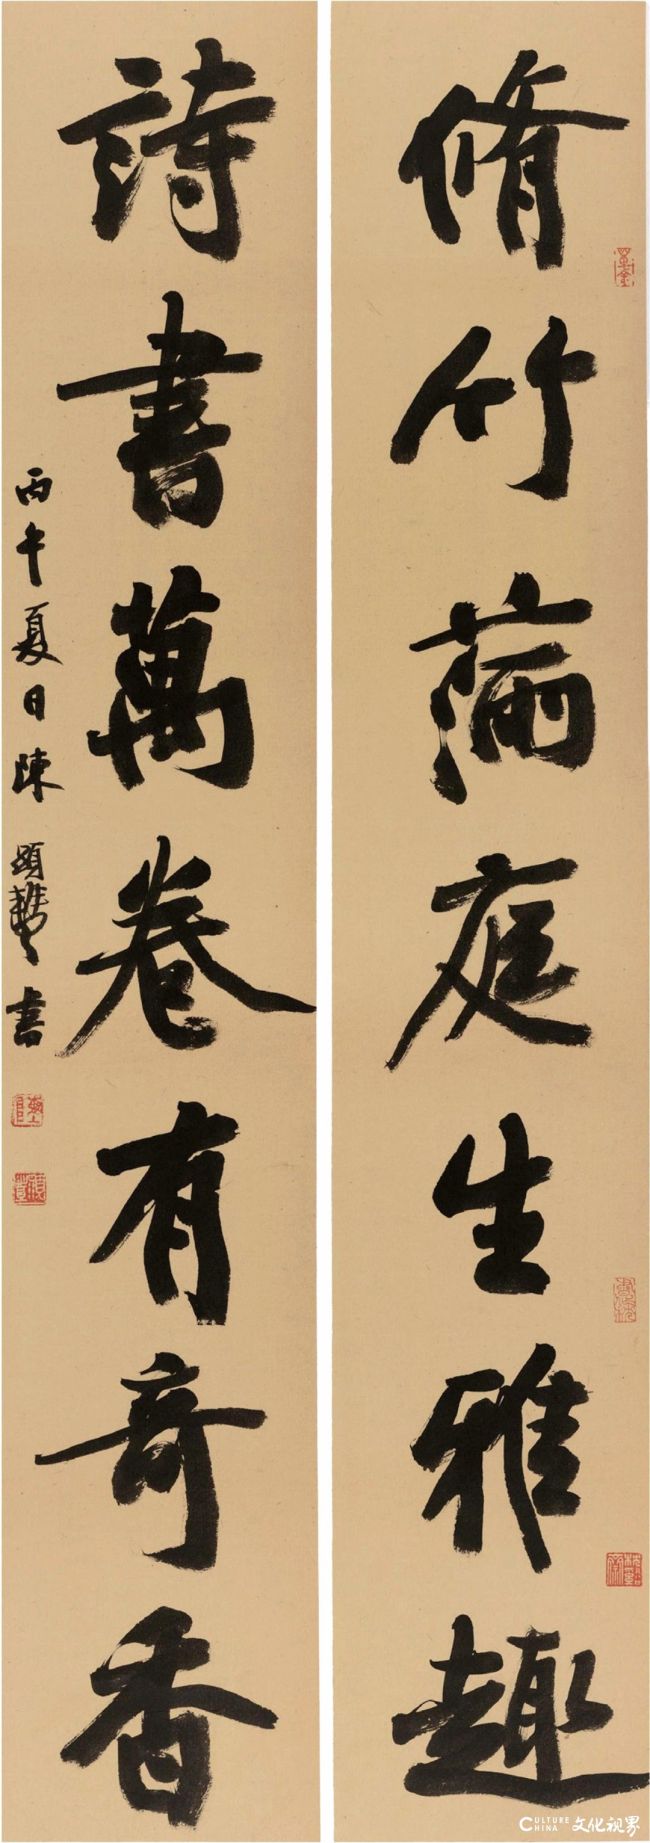 脩竹滿庭生雅趣
詩書萬卷有奇香
丙午夏日陳顯贊書
CULTURE CHINA 文化视界